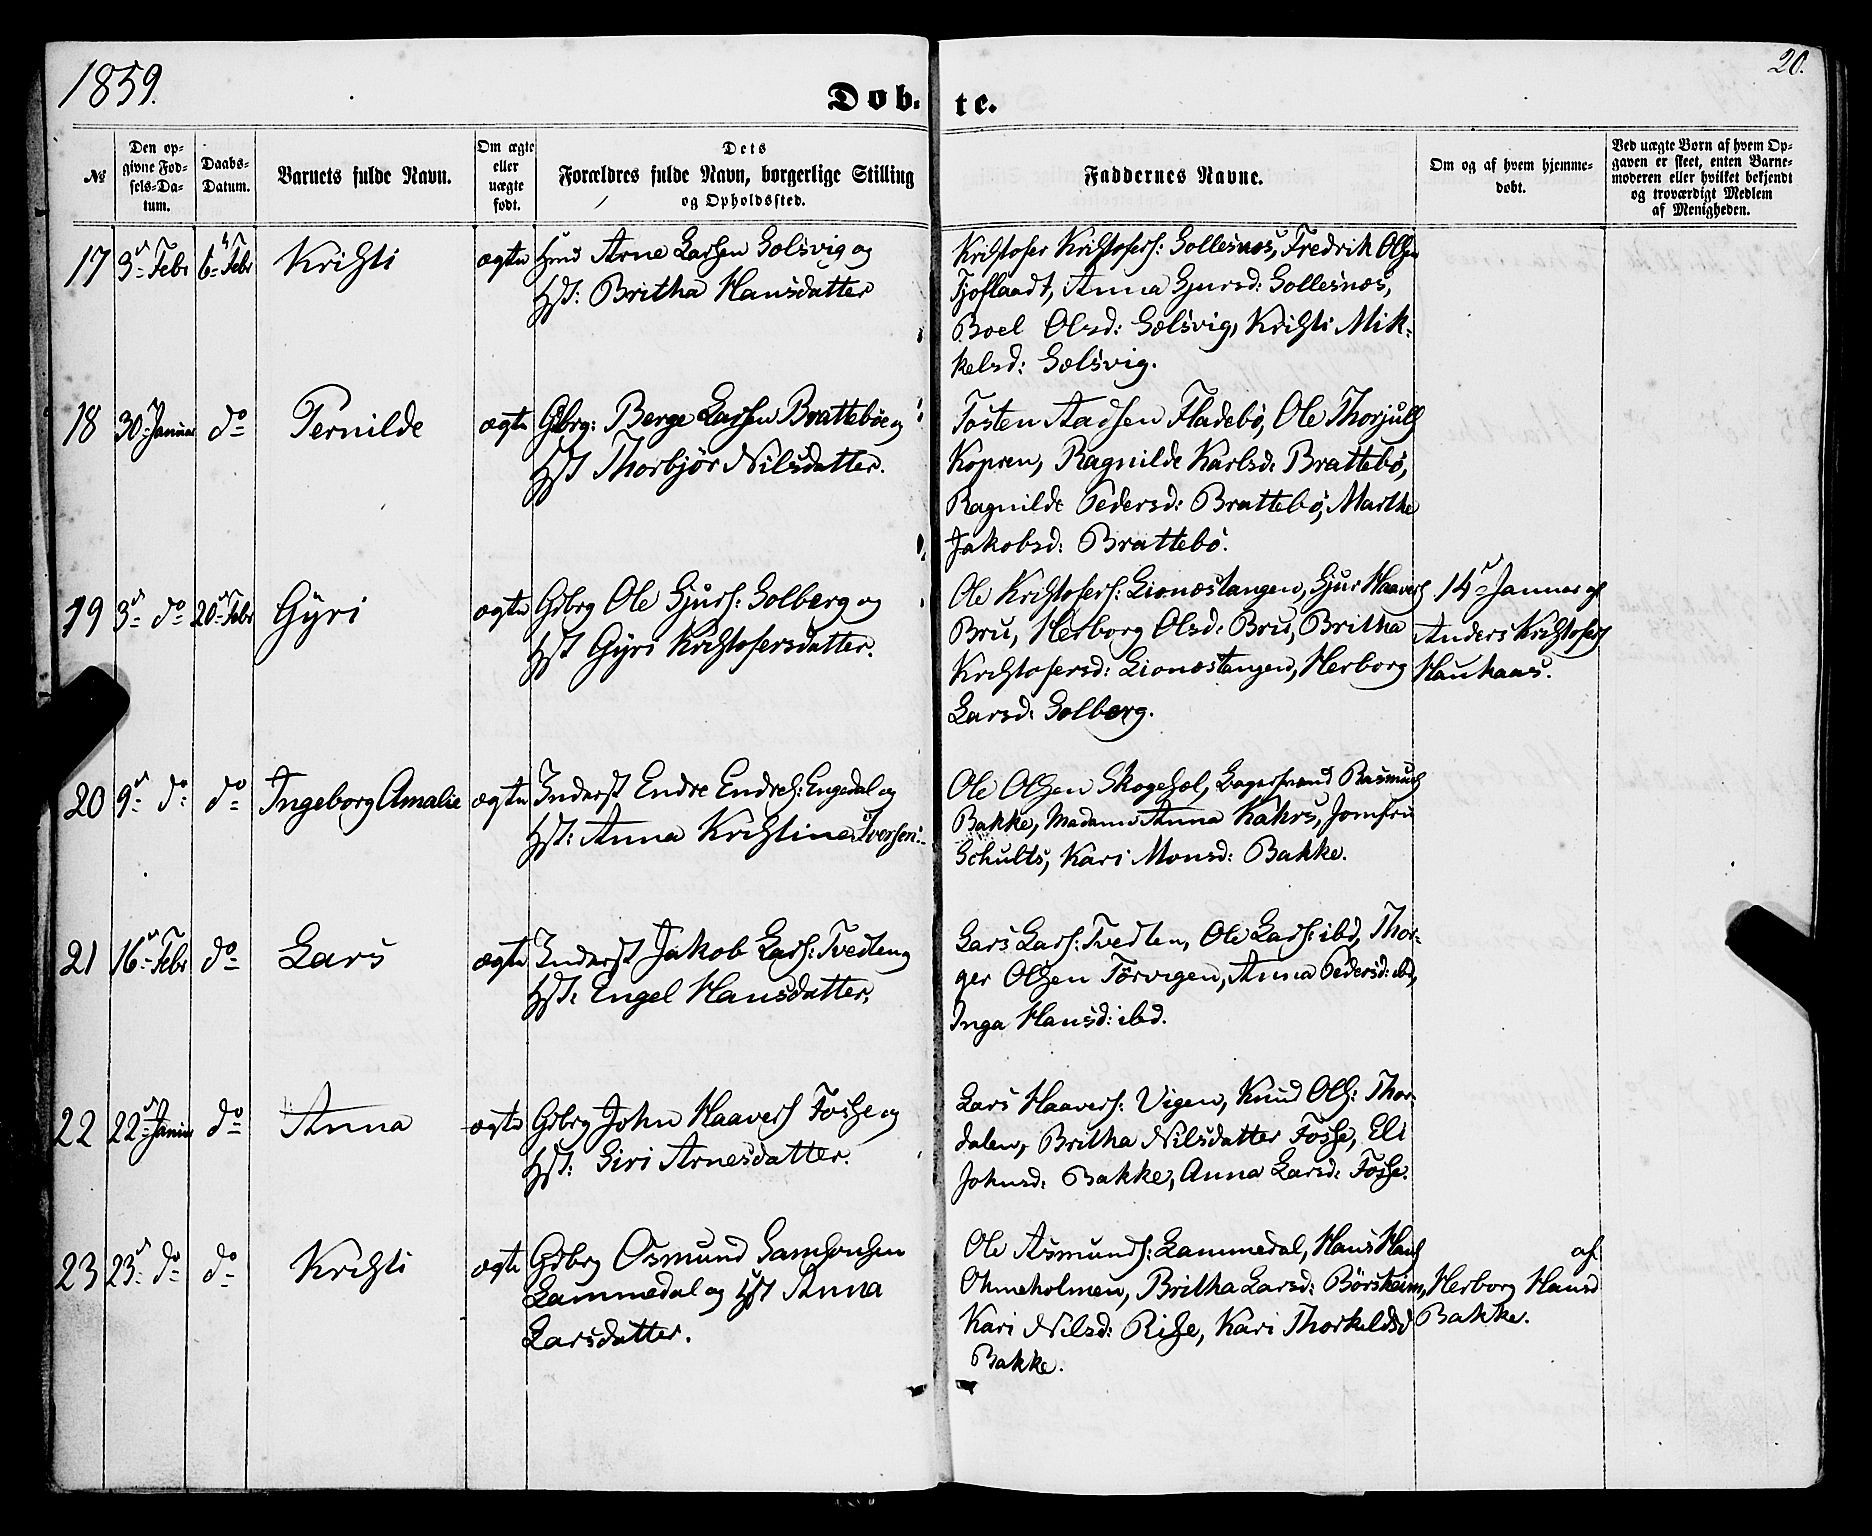 1859.
20.
Døb- te.
№
Den op-
givne Fød-
sels-Da-
tum.
Daabs-
Datum.
Barnets fulde Navn.
Om ægte
eller
uægte
født.
Dets
Forældres fulde Navn, borgerlige Stilling
og Opholdssted.
Faddernes Navne.
Om og af hvem hjemme-
døbt.
Ved uægte Børn af hvem Op-
gaven er skeet, enten Barne-
moderen eller hvilket bekjendt
og troværdigt Medlem
af Menigheden.
17 3 Febr 6 Febr Kristi ægte Hmd Arne Larsen Solsvig og
Hst: Britha Hansdatter
Kristofer Kristofers: Sollesnæs, Fredrik Olsen
Tjoflaadt, Anna Gjursd: Sollesnæs,
Boel Olsd: Solsvig, Kristi Mik-
kelsd: Solsvig.
18 30 Januar do Pernilde ægte Gbrg: Berge Larsen Brattebøe og
Hst Thorbjør Nilsdatter.
Tosten Aadsen Fladebø, Ole Thorjuls
Kopren, Ragnilde Karlsd: Brattebø,
Ragnilde Pedersd: Brattebø, Marthe
Jakobsd: Brattebø.
19 3 do 20 Febr Gyri ægte Gbrg Ole Gjurs: Solberg og
Hst Gyri Kristofersdatter.
Ole Kristofers: Lionæstangen, Gjur Haavers
Bru, Herborg Olsd: Bru, Britha
Kristofersd: Lionæstangen, Herborg
Larsd: Solberg.
14 Januar af
Anders Kristofers
Haukaas.
20 9 do do Ingeborg Amalie ægte Inderst Endre Endres: Engedal og
Hst: Anna Kristine Iversen.
Ole Olsen Skogesæl, Rasmus
Bakke, Madame Anna Kahrs, Jomfru
Schults, Kari Monsd: Bakke.
21 16 Febr do Lars ægte Inderst Jakob Lars: Tvedten og
Hst: Engel Hansdatter.
Lars Lars: Tvedten, Ole Lars: ibd, Thor-
ger Olsen Tørvigen, Anna Pedersd: ibd,
Inga Hansd: ibd.
22 22 Januar do Anna ægte Gbrg John Haavers Fosse og
Hst: Siri Arnesdatter.
Lars Haavers: Vigen, Knud Ols: Thor-
dalen, Britha Nilsdatter Fosse, Eli
Johnsd: Bakke, Anna Larsd: Fosse.
23 23 do do Kristi ægte Gbrg Osmund Samsonsen
Lammedal og Hst Anna
Larsdatter.
Ole Asmunds: Lammedal, Hans Hans
Ohmeholmen, Britha Larsd: Børsheim,
Kari Nilsd: Risse, Kari Thorkeldsd
Bakke.
af
Herborg Hansd
Bakke.